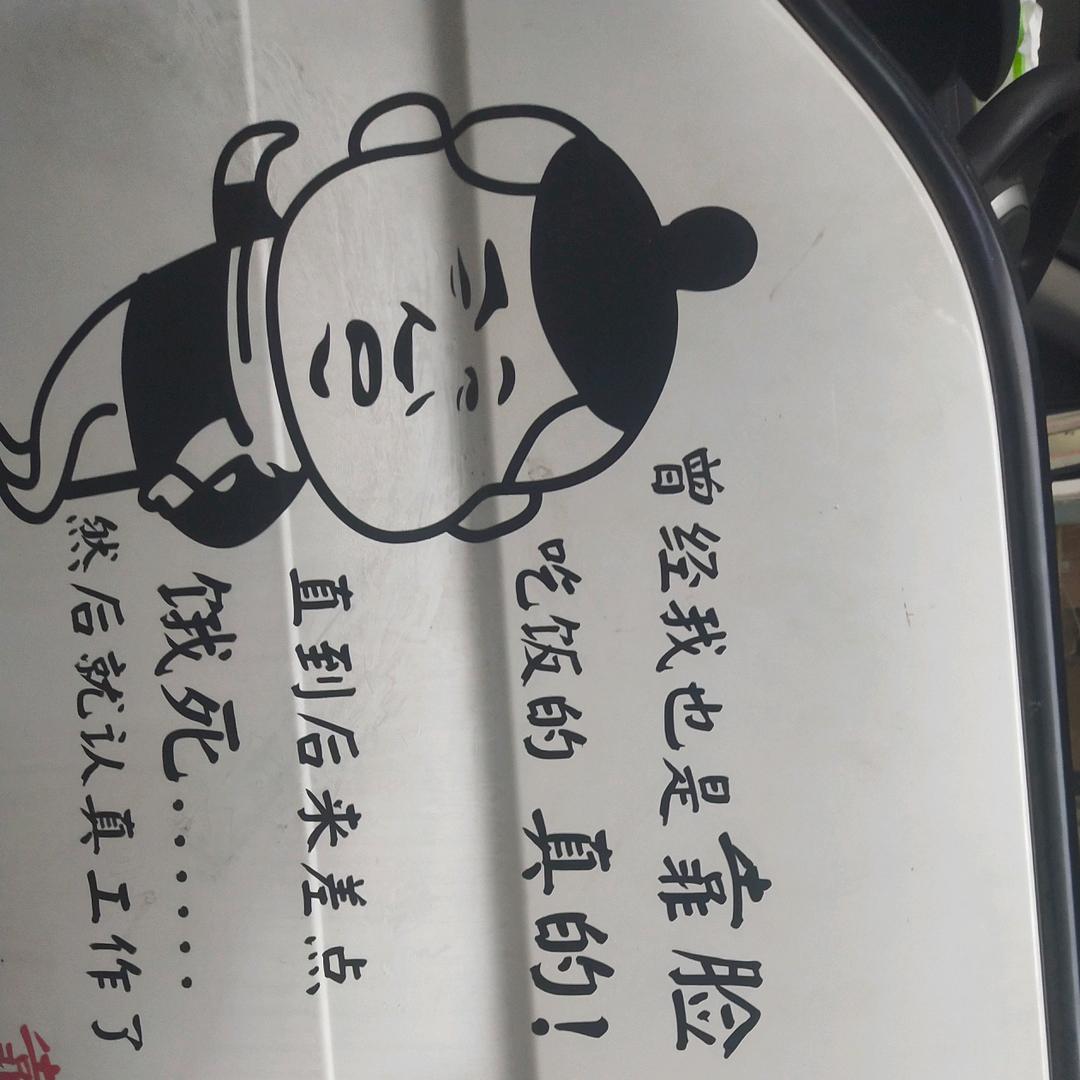 曾经我也是靠脸
吃饭的 真的!
直到后来差点
饿死······
然后就认真工作了